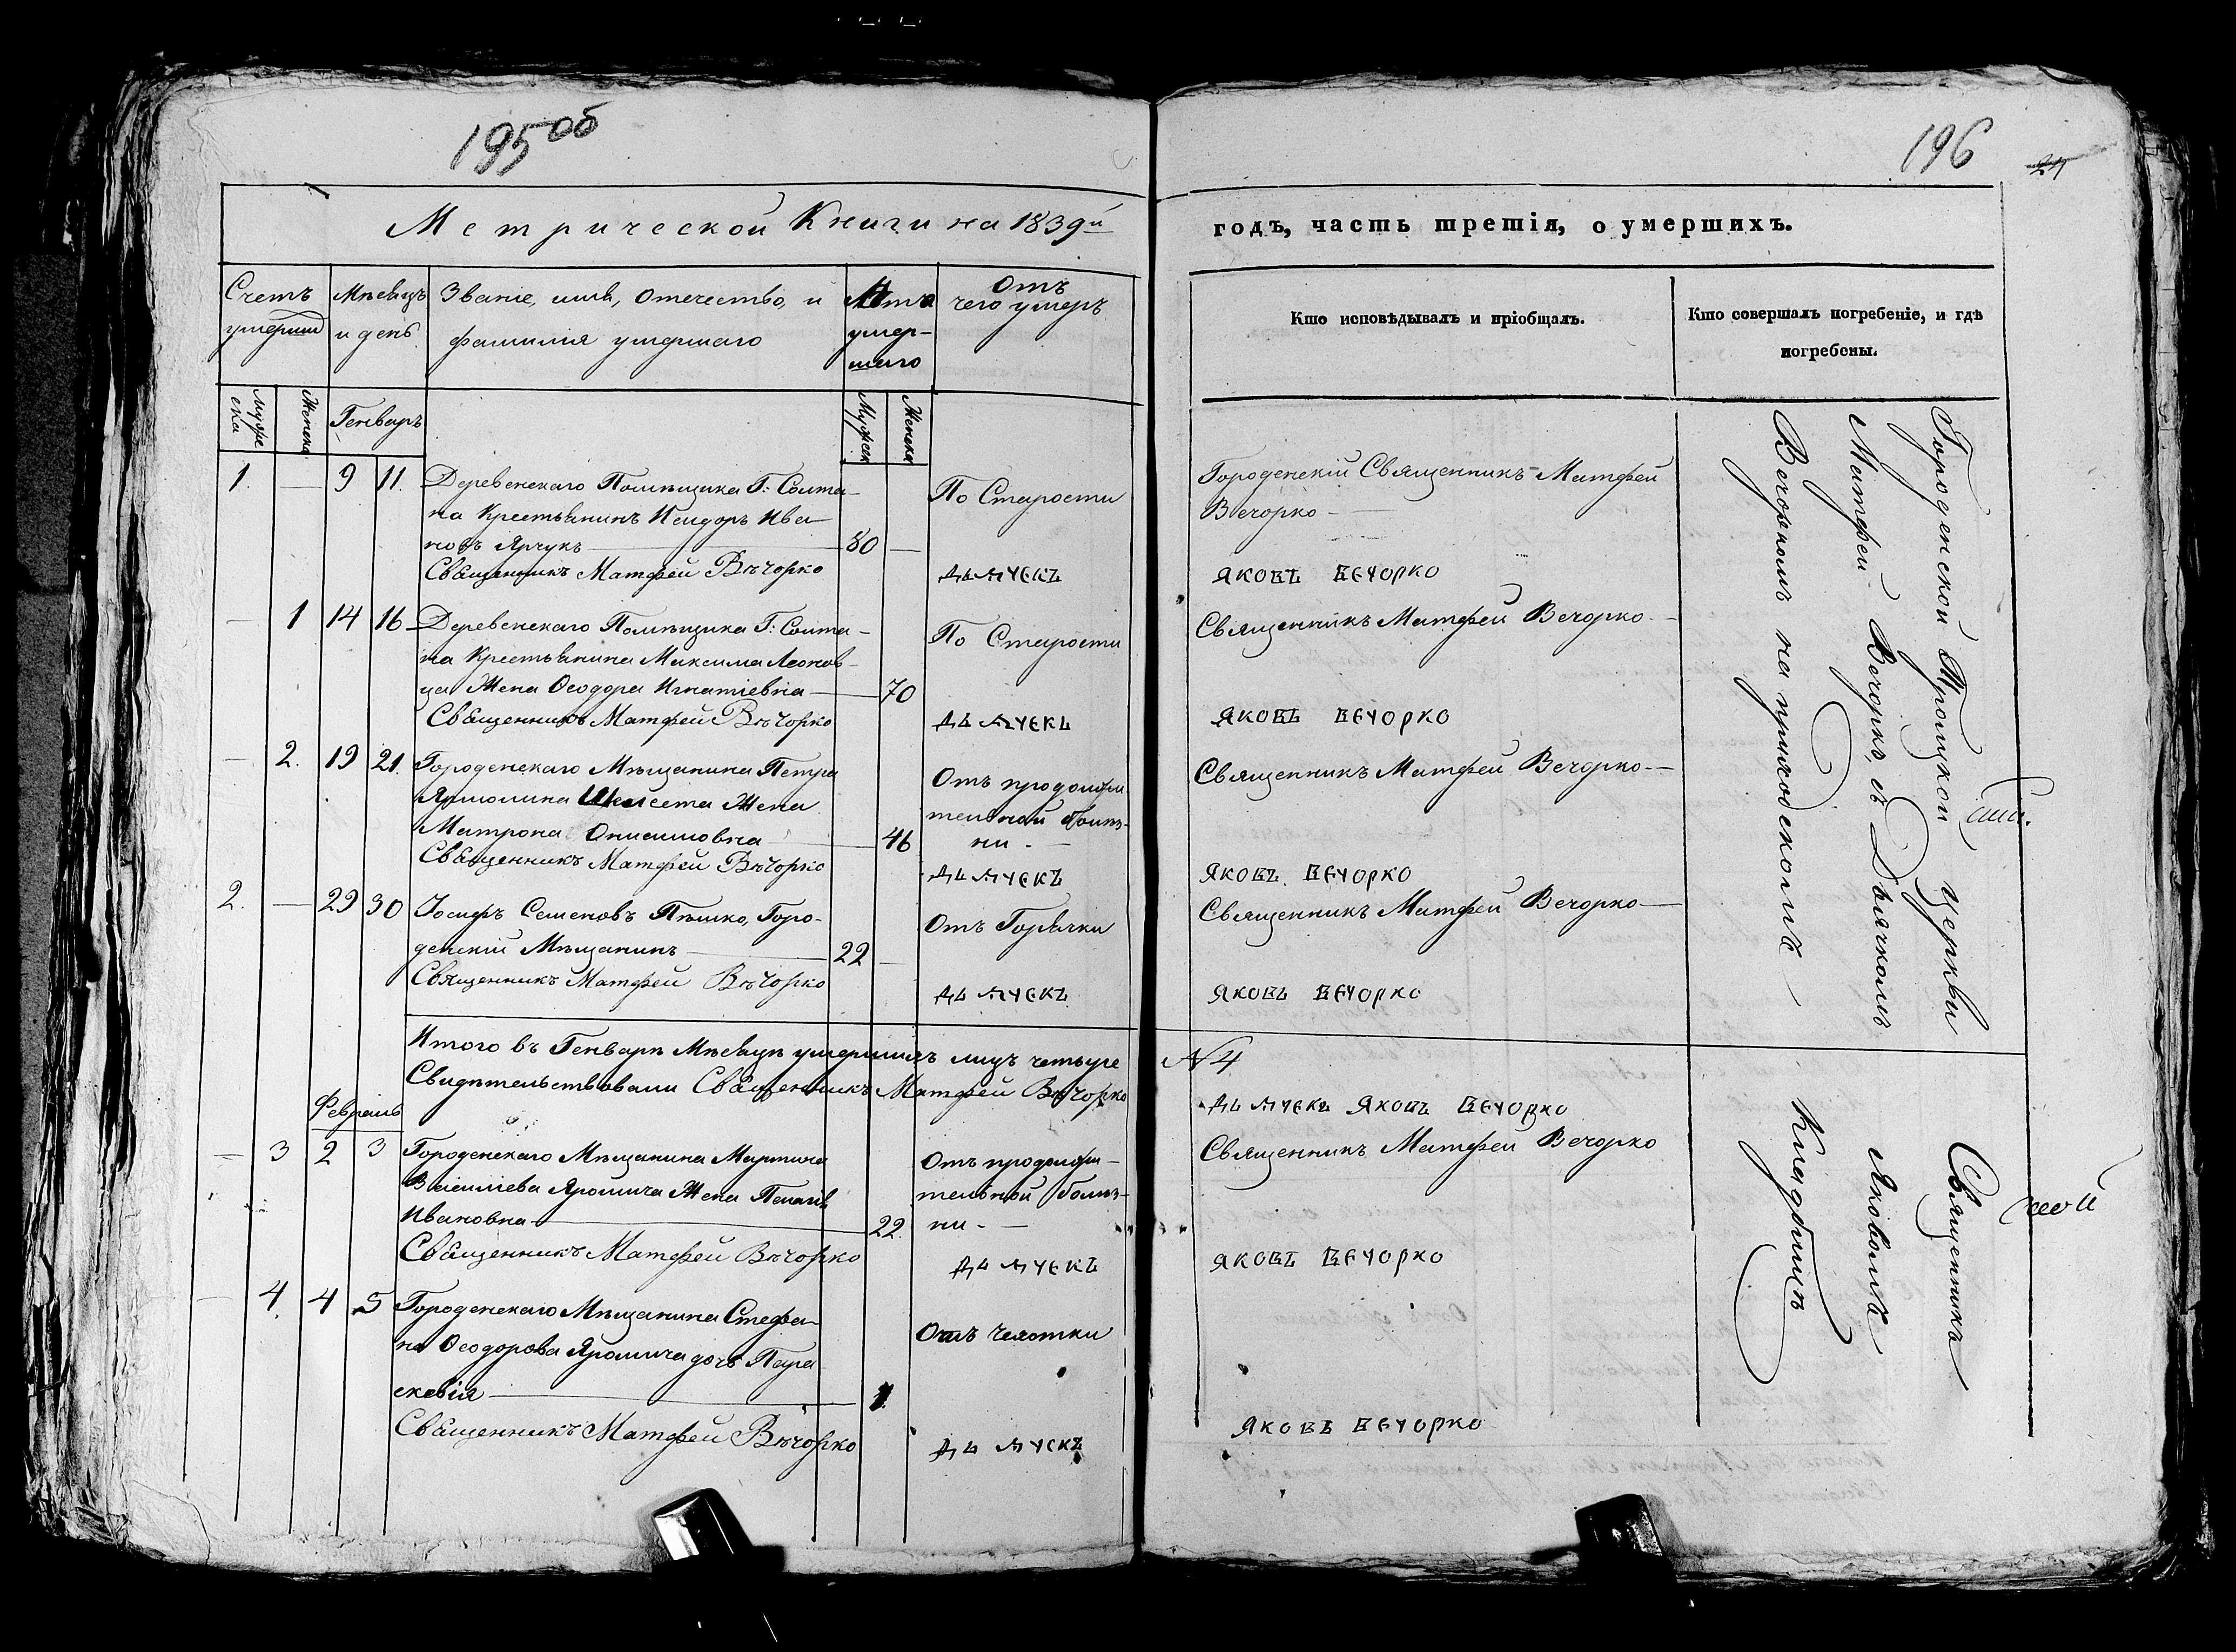 195об
196
24
Метрической Книги на 1839й
годъ, часть третія, о умершихъ.
Счетъ умерши
Мѣсяцъ и день
Званіе, имя, Отечество, и фамилія умершаго
Лѣта умер-
шаго
Отъ
чего умеръ
Кто исповѣдывалъ и пріобщалъ.
Кто совершалъ погребеніе, и гдѣ
погребены.
Муже
ска
Женска
Генварь
Мужеск
Женска
1. — 9 11. Деревенскаго Помѣщика Г: Солта-
на Крестьянинъ Исидоръ Ива-
новъ Ярчукъ — 80 —
По Старости
Городенскій Священникъ Матфей
Вечорко —
Священникъ Матфей Вѣчорко
Дьячекъ
Яковъ Вечорко
— 1 14 16 Деревенскаго Помѣщика Г: Солта-
на Крестьянина Максима Леонов-
ца Жена Ѳеодора Игнатіевна — 70
По Старости
Священникъ Матфей Вечорко —
Священникъ Матфей Вѣчорко
Дьячекъ
Яковъ Вечорко
— 2. 19 21. Городенскаго Мѣщанина Петра
Жена
Матрона Онисимовна — 46
Отъ продолжи
тельной болѣз-
ни. —
Священникъ Матфей Вечорко —
Священникъ Матфей Вѣчорко
Дьячекъ
Яковъ Вечорко
2. — 29 30 Іосифъ Семеновъ Пѣшко, Горо-
денскій Мѣщанинъ — 22 —
Отъ Горячки
Священникъ Матфей Вечорко —
Священникъ Матфей Вѣчорко
Дьячекъ
Яковъ Вечорко
Городенской Троицкой церкви
Матфей Вечорко, съ Дьячкомъ
Вечоркомъ на приходскомъ
Итого въ Генварѣ Мѣсяцѣ умершихъ лицъ четыре
N 4
Свидѣтельствовали Священникъ Матфей Вѣчорко
Дьячекъ Яковъ Вечорко
Февраль
— 3 2 3 Городенскаго Мѣщанина Мартина
Василіева Яромича Жена Пелагія
Ивановна — 22.
Отъ продолжи-
тельной болѣз-
ни. —
Священникъ Матфей Вечорко
Священникъ Матфей Вѣчорко
Дьячекъ
Яковъ Вечорко
— 4. 4 5 Городенскаго Мѣщанина Стефа-
на Ѳеодорова Яромича дочь Пара
скевія — 1
Отъ Чесотки
Священникъ Матфей Вѣчорко
Дьячекъ
Яковъ Вечорко
Священникъ
Яковомъ
Кладбищѣ